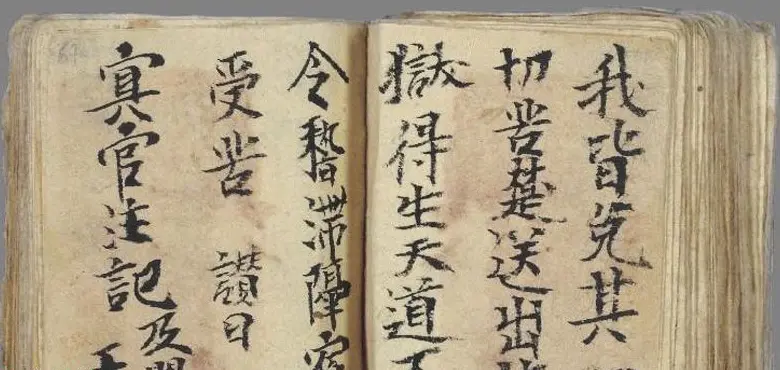 我皆免其
切苦楚送出
獄得生天道不
令稽滯隔宿
受苦 讚曰
冥官注記及